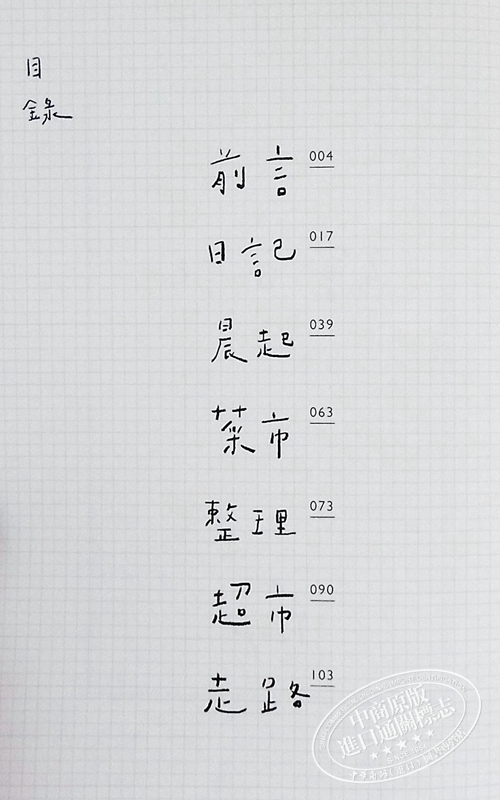 目
錄
前言 004
日記 017
晨起 039
菜市 063
整理 073
超市 090
走路 103
中商原版
進口通關標志